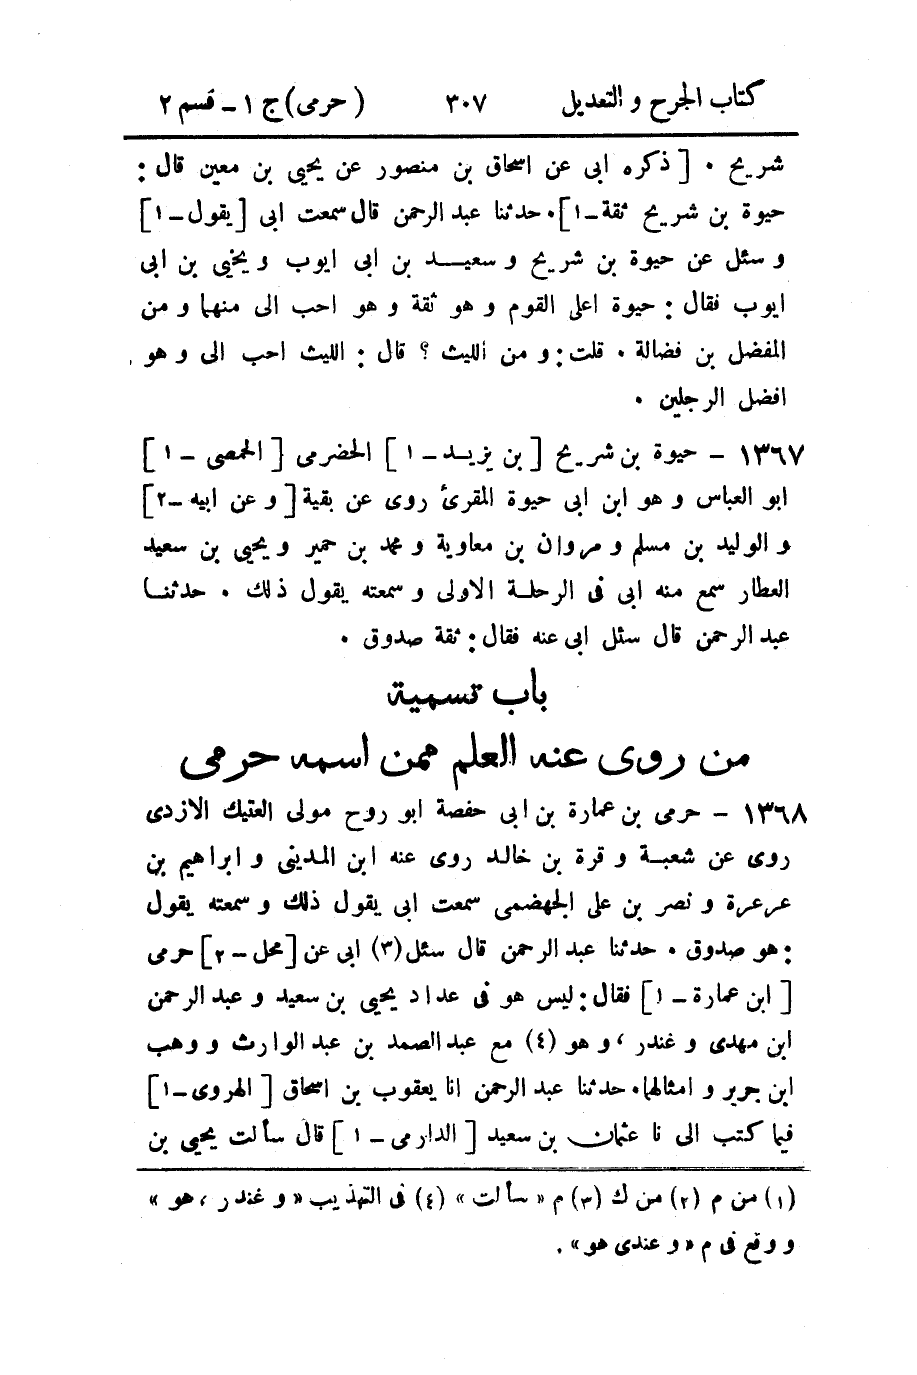 كتاب الجرح و التعديل ٣٠٧ (حرمى) ج ١ ـ قسم ٢
شريح ٠ [ ذكره ابى عن اسحاق بن منصور عن يحيى بن معين قال :
حيوة بن شريح ثقة ـ ١ ] ٠ حدثنا عبد الرحمن قال سمعت ابى [ يقول ـ ١ ]
و سئل عن حيوة بن شريح و سعيد بن ابى ايوب و يحيى بن ابى
ايوب فقال : حيوة اعلى القوم و هو ثقة و هو احب الى منهما و من
المفضل بن فضالة ٠ قلت : و من الليث ؟ قال : الليث احب الى و هو
افضل الرجلين ٠
١٣٦٧ ـ حيوة بن شريح [ بن يزيد ـ ١ ] الحضرمى [ الحمصى ـ ١ ]
ابو العباس و هو ابن ابى حيوة المقرئ روى عن بقية [ و عن ابيه ـ ٢ ]
و الوليد بن مسلم و مروان بن معاوية و محمد بن حمير و يحيى بن سعيد
العطار سمع منه ابى فى الرحلة الاولى و سمعته يقول ذلك ٠ حدثنا
عبد الرحمن قال سئل ابى عنه فقال : ثقة صدوق ٠
باب تسمية
من روى عنه العلم ممن اسمه حرمى
١٣٦٨ ـ حرمى بن عمارة بن ابى حفصة ابو روح مولى العتيك الازدى
روى عن شعبة و قرة بن خالد روى عنه ابن المدينى و ابراهيم بن
عرعرة و نصر بن على الجهضمى سمعت ابى يقول ذلك و سمعته يقول
: هو صدوق ٠ حدثنا عبد الرحمن قال سئل (٣) ابى عن [ محل ـ ٢ ] حرمى
[ ابن عمارة ـ ١ ] فقال : ليس هو فى عداد يحيى بن سعيد و عبد الرحمن
ابن مهدى و غندر ، و هو (٤) مع عبد الصمد بن عبد الوارث و وهب
ابن جرير و امثالهما ٠ حدثنا عبد الرحمن انا يعقوب بن اسحاق [ الهروى ـ ١ ]
فيما كتب الى نا عثمان بن سعيد [ الدارمى ـ ١ ] قال سألت يحيى بن
(١) من م (٢) من ك (٣) م « سألت » (٤) فى التهذيب « و غندر ، هو »
و وقع فى م « و عندى هو » .